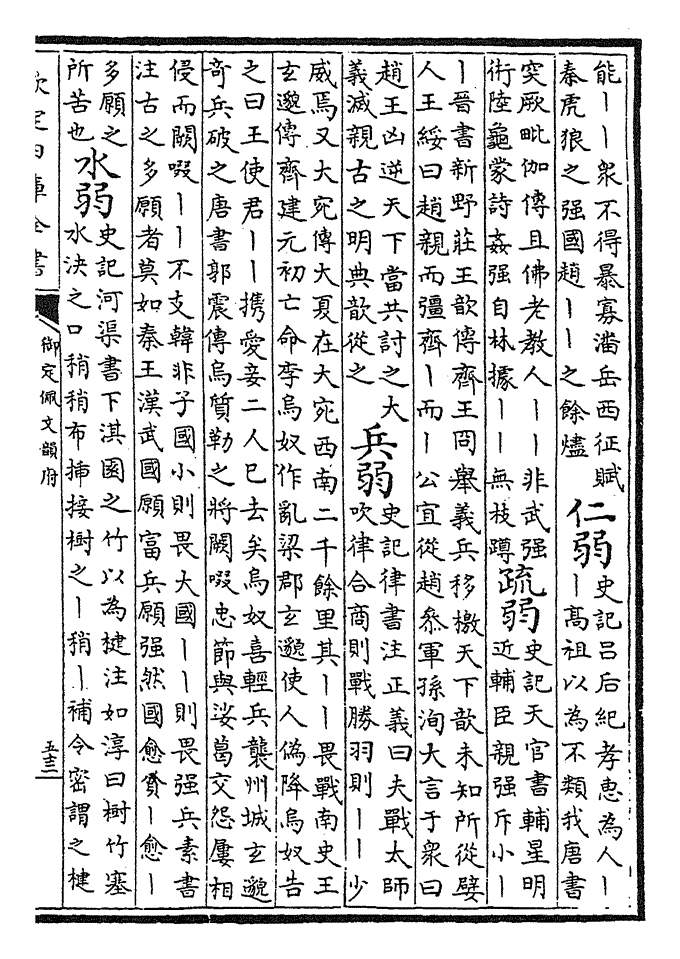 能丨丨衆不得暴寡潘岳西征賦
秦虎狼之强國趙丨丨之餘燼
仁弱
史記吕后紀孝惠為人丨
丨高祖以為不類我唐書
突厥毗伽傳且佛老教人丨丨非武强
術陸龜蒙詩姦强自林據丨丨無枝蹲
疏弱
史記天官書輔星明
近輔臣親强斥小丨
丨晉書新野莊王歆傳齊王冏舉義兵移檄天下歆未知所從嬖
人王綏曰趙親而彊齊丨而丨公宜從趙叅軍孫洵大言于衆曰
趙王凶逆天下當共討之大
義滅親古之明典歆從之
兵弱
史記律書注正義曰夫戰太師
吹律合商則戰勝羽則丨丨少
威焉又大宛傳大夏在大宛西南二千餘里其丨丨畏戰南史王
玄邈傳齊建元初亡命李烏奴作亂梁郡玄邈使人偽降烏奴告
之曰王使君丨丨携愛妾二人已去矣烏奴喜輕兵襲州城玄邈
奇兵破之唐書郭震傳烏質勒之將闕啜忠節與娑葛交怨屢相
侵而闕啜丨丨不支韓非子國小則畏大國丨丨則畏强兵素書
注古之多願者莫如秦王漢武國願富兵願强然國愈貧丨愈丨
多願之
所苦也
水弱
史記河渠書下淇園之竹以為楗注如淳曰樹竹塞
水決之口稍稍布揷接樹之丨稍丨補令密謂之楗
欽定四庫全書
御定佩文韻府